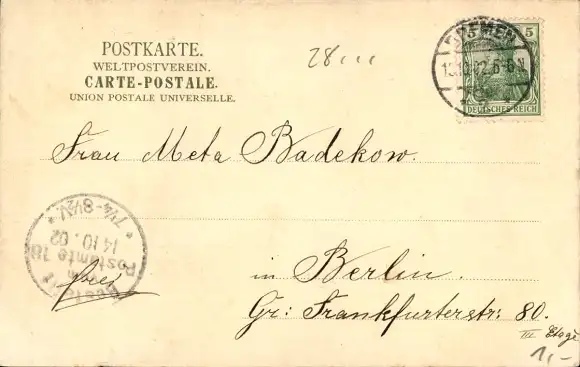 POSTKARTE.
WELTPOSTVEREIN.
CARTE-POSTALE.
UNION POSTALE UNIVERSELLE.
28
BREMEN
13.10.02. 6-
5
DEUTSCHES REICH
Frau Meta Badekow.
Bestellt
Postamte 18
14 10. 02
7¼-8½V.
frei
in Berlin.
Gr: Frankfurterstr: 80.
III Etage
1,-